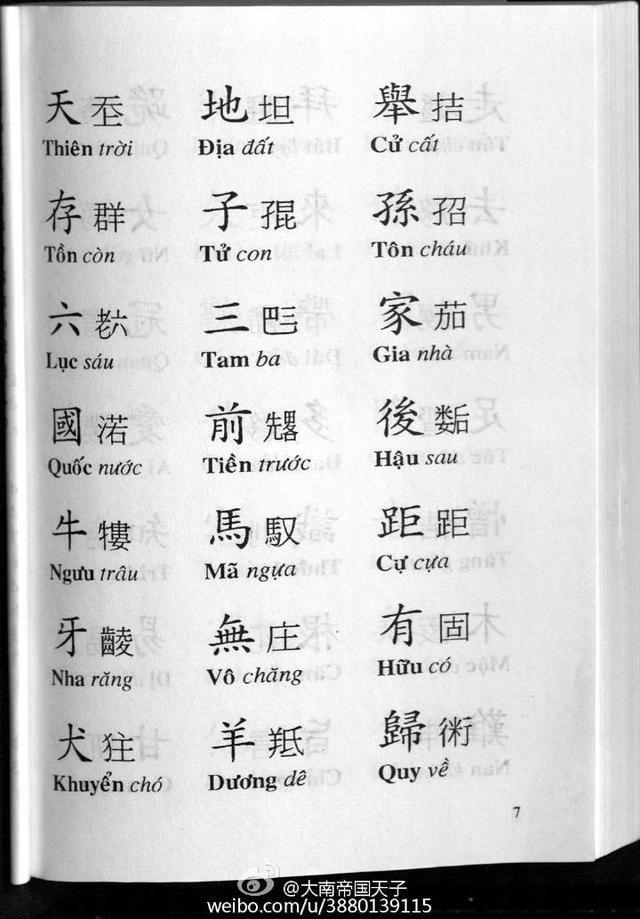 天 𡗶 地 坦 舉 拮
Thiên trời Địa đất Cử cất
存 群 子 𡥵 孫 𡥙
Tồn còn Tử con Tôn cháu
六 𦒹 三 𠀧 家 茄
Lục sáu Tam ba Gia nhà
國 渃 前 後
Quốc nước Tiền trước Hậu sau
牛 𤛠 馬 馭 距 距
Ngưu trâu Mã ngựa Cự cựa
牙 𪘵 無 庄 有 固
Nha răng Vô chăng Hữu có
犬 㹥 羊 羝 歸 術
Khuyển chó Dương dê Quy về
7
@大南帝国天子
weibo.com/u/3880139115